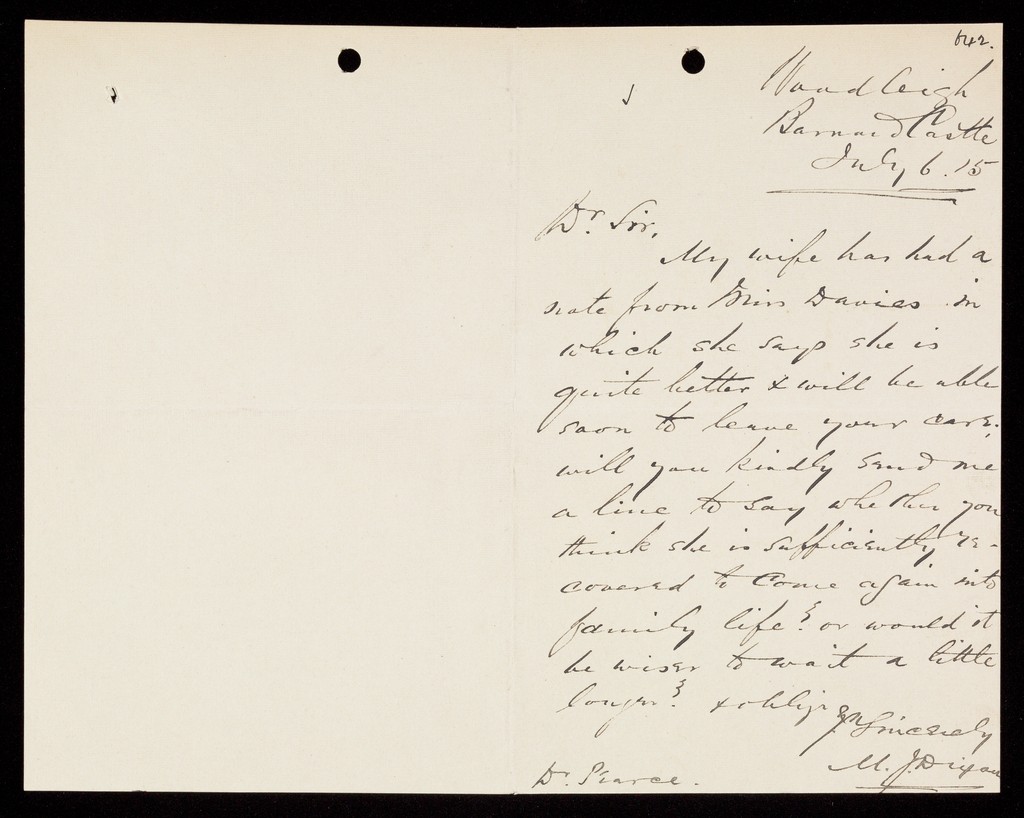 642.
Woodleigh
Barnard Castle
July 6. 15
Dr. Sir,
My wife has had a
note from Miss Davies in
which she says she is
quite better & will be able
soon to leave your care.
will you kindly send me
a line to say whether you
think she is sufficiently re-
covered to come again into
family life? or would it
be wiser to wait a little
longer? & oblige
Yrs Sincerely
M. J. Dixon
Dr. Pearce.